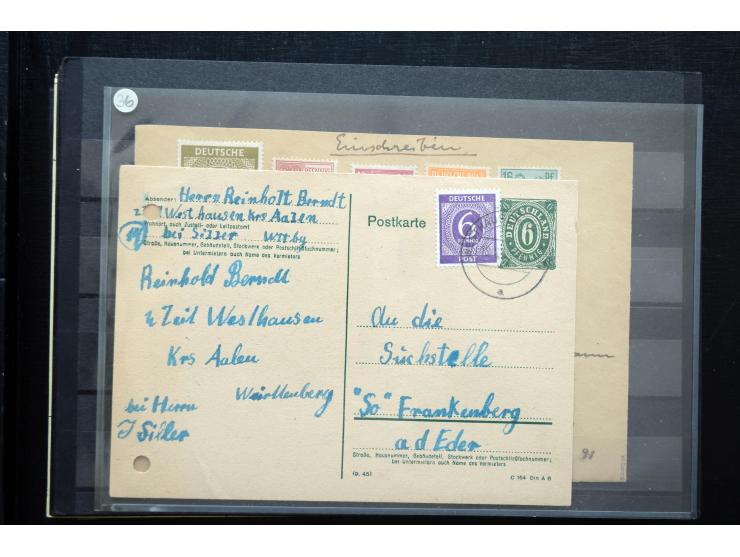 36
Einschreiben
DEUTSCHE
16 PF
Absender: Herrn Reinholt Berndt
Westhausen Krs Aalen
Wohnort, auch Zustell- oder Leitpostamt
bei Sitzer Wttbg
Straße, Hausnummer, Gebäudeteil, Stockwerk oder Postschließfachnummer;
bei Untermietern auch Name des Vermieters
Reinhold Berndt
z Zeit Westhausen
Krs Aalen
Württenberg
bei Herrn
J Sitler
Postkarte
DEUTSCHE
6
PFENNIG
POST
DEUTSCHLAND
6
PFENNIG
a
An die
Suchstelle
"So" Frankenberg
a d Eder
Straße, Hausnummer, Gebäudeteil, Stockwerk oder Postschließfachnummer;
bei Untermietern auch Name des Vermieters
C 154 Din A 6